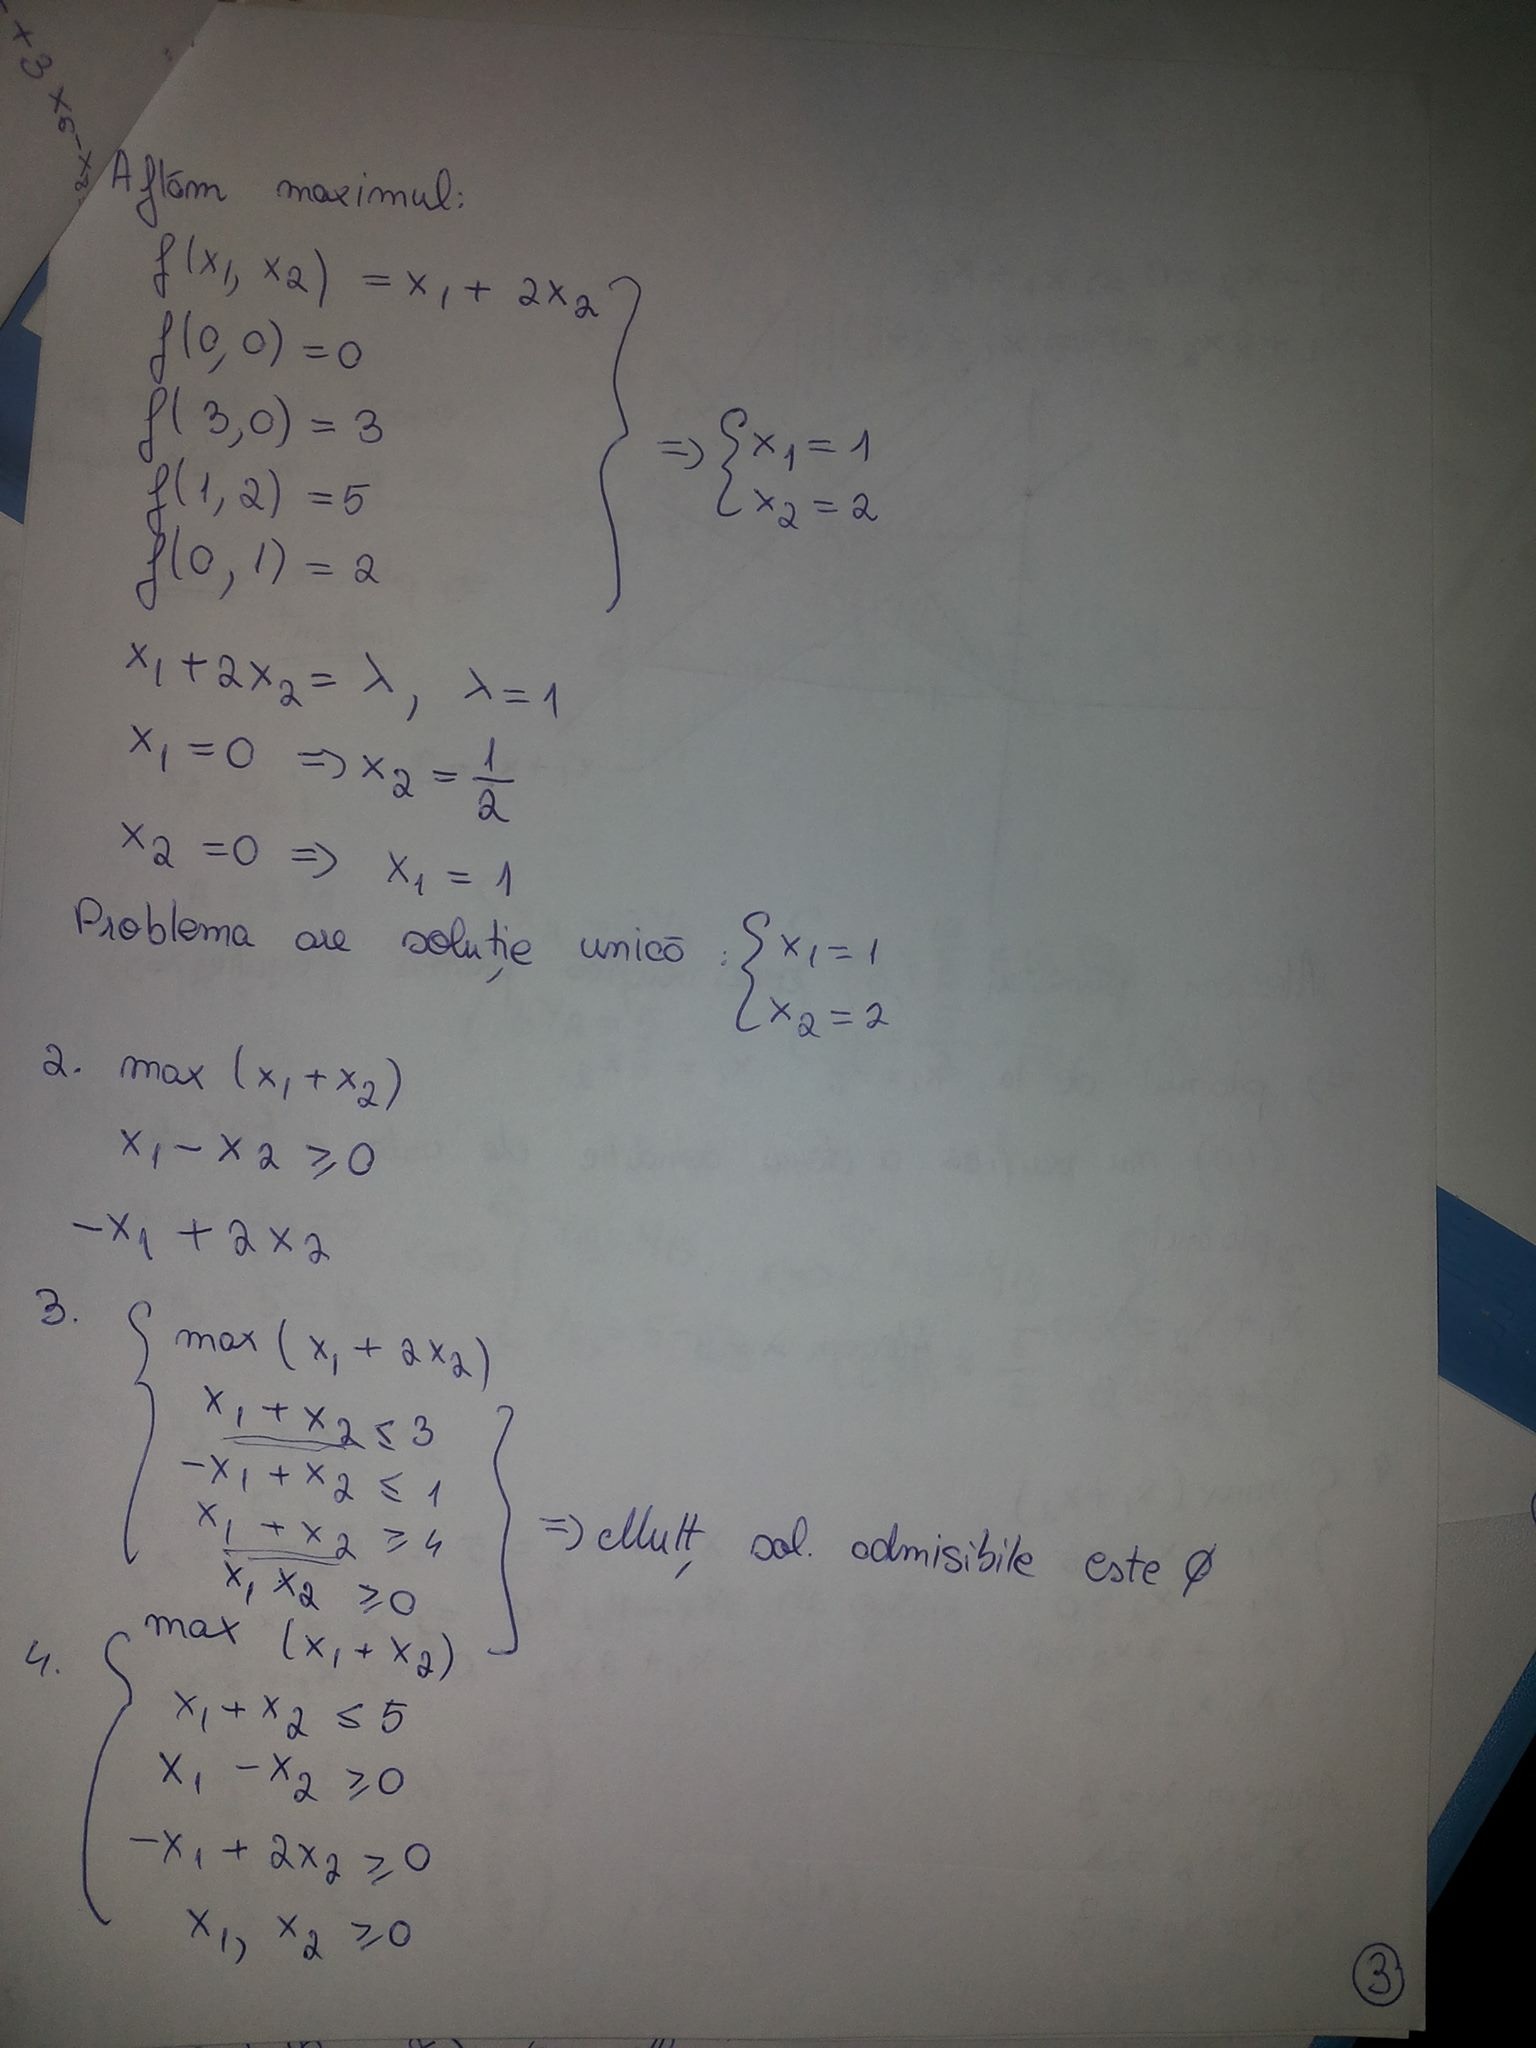 Aflăm maximul:
f(x₁, x₂) = x₁ + 2x₂
f(0, 0) = 0
f(3, 0) = 3
f(1, 2) = 5
f(0, 1) = 2
=> { x₁ = 1
x₂ = 2
x₁ + 2x₂ = λ, λ = 1
x₁ = 0 => x₂ = 1/2
x₂ = 0 => x₁ = 1
Problema are soluție unică : { x₁ = 1
x₂ = 2
2. max (x₁ + x₂)
x₁ - x₂ ≥ 0
-x₁ + 2x₂
3. { max (x₁ + 2x₂)
x₁ + x₂ ≤ 3
-x₁ + x₂ ≤ 1
x₁ + x₂ ≥ 4
x₁ x₂ ≥ 0
} => Mulț sol. admisibile este ∅
4. { max (x₁ + x₂)
x₁ + x₂ ≤ 5
x₁ - x₂ ≥ 0
-x₁ + 2x₂ ≥ 0
x₁, x₂ ≥ 0
3